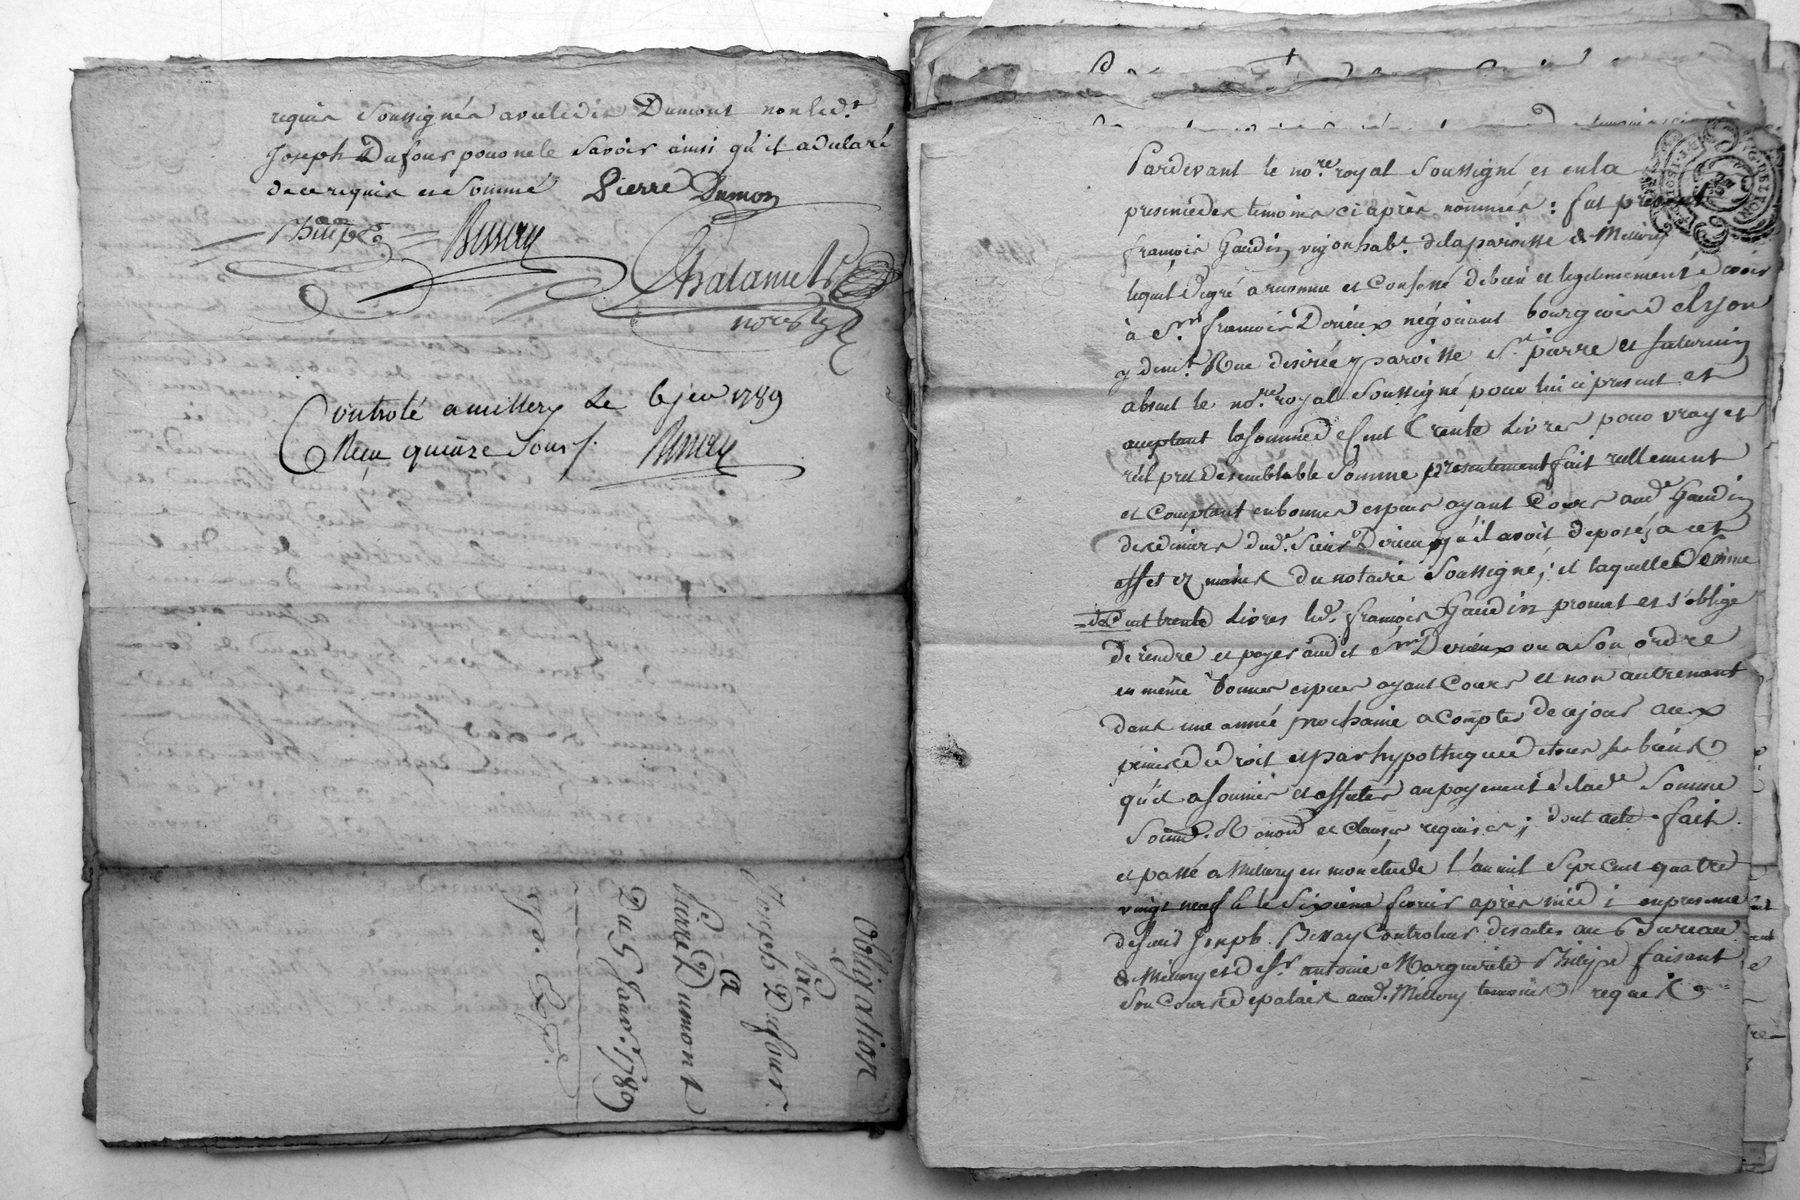 requis Soussignés avec ledit Dumont non led.t
Joseph Dufour pour ne le Savoir ainsi qu'il a declaré
de ce requis et Sommé Pierre Dumon
Philipe Bessay
Chalamel
no.re
Controlé a millery le 6 jer 1789
Reçu quinze Sous /. Bessay
Obligation
par
Joseph Dufour
a
pierre Dumont
Du 5 Janv.r 1789
Pardevant le no.re royal Soussigné et en la
presence des temoins ci après nommés : fut present
françois Gaudin vigon hab.t de la paroisse de Millery
lequel de gré a reconnu et Confessé debvoir et legitimement devoir
à S.r françois Derieux négotiant bourgeois de Lyon
y dem.t Rue desirée paroisse S.t pierre et saturnin
absent le no.re royal Soussigné pour lui ci present et
acceptant la Somme de Cent trente Livres pour vray et
réel pret de semblable Somme presentement fait réellement
et Comptant en bonnes especes ayant Cours aud. Gaudin
des deniers dud. Sieur Derieux qu'il avoit deposé, a cet
effet ez mains du notaire Soussigné ; et laquelle Somme
de Cent trente Livres led. françois Gaudin promet et s'oblige
de rendre et payer audit S.r Derieux ou a Son ordre
en même bonnes especes ayant Cours et non autrement
dans une année prochaine a Compter de ce jour aux
peines de droit et par hypotheque de tous ses biens
qu'il a Soumis et affectés au payement de lad.e Somme
Soum. Renond et clauses requises ; dont acte fait
et passé a Millery en mon etude l'an mil Sept Cent quatre
vingt neuf & le Sixieme après midi en presence
de Sieur Joseph Bessay Controleur des actes au Bureau
de Millery et de S.r antoine Marguerite Philipe faisant
Son Cours de palais aud. Millery temoins requis